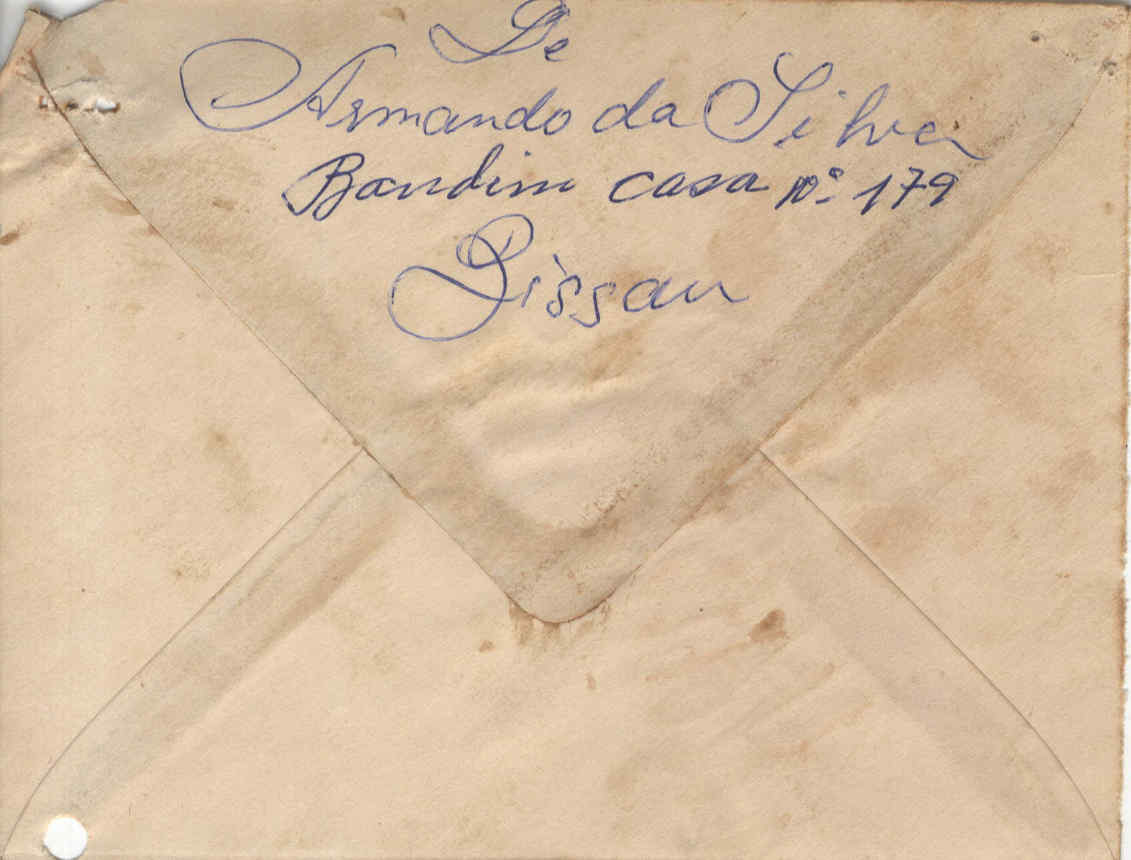 De
Armando da Silva
Bandim casa nº 179
Bissau